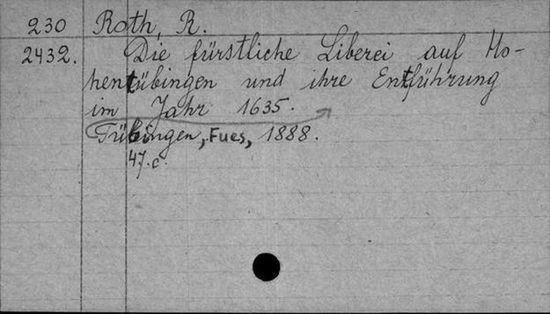 230 Roth, R.
2432. Die fürstliche Liberei auf Ho-
hentübingen und ihre Entführung
im Jahr 1635.
Tübingen, Fues, 1888.
47.c.